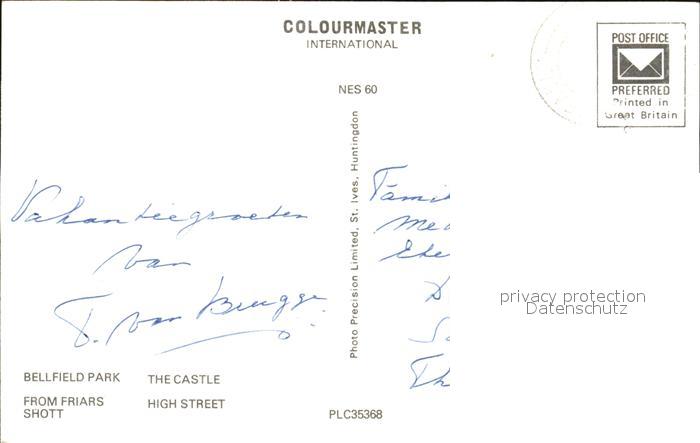 COLOURMASTER
INTERNATIONAL
POST OFFICE
PREFERRED
Printed in
Great Britain
NES 60
Photo Precision Limited, St. Ives, Huntingdon
Vakantiegroeten
van
T. van Brugge.
Fami
privacy protection
Datenschutz
BELLFIELD PARK THE CASTLE
FROM FRIARS HIGH STREET
SHOTT
PLC35368